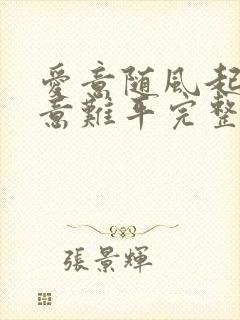 愛意随风起
意難平完整
張景輝